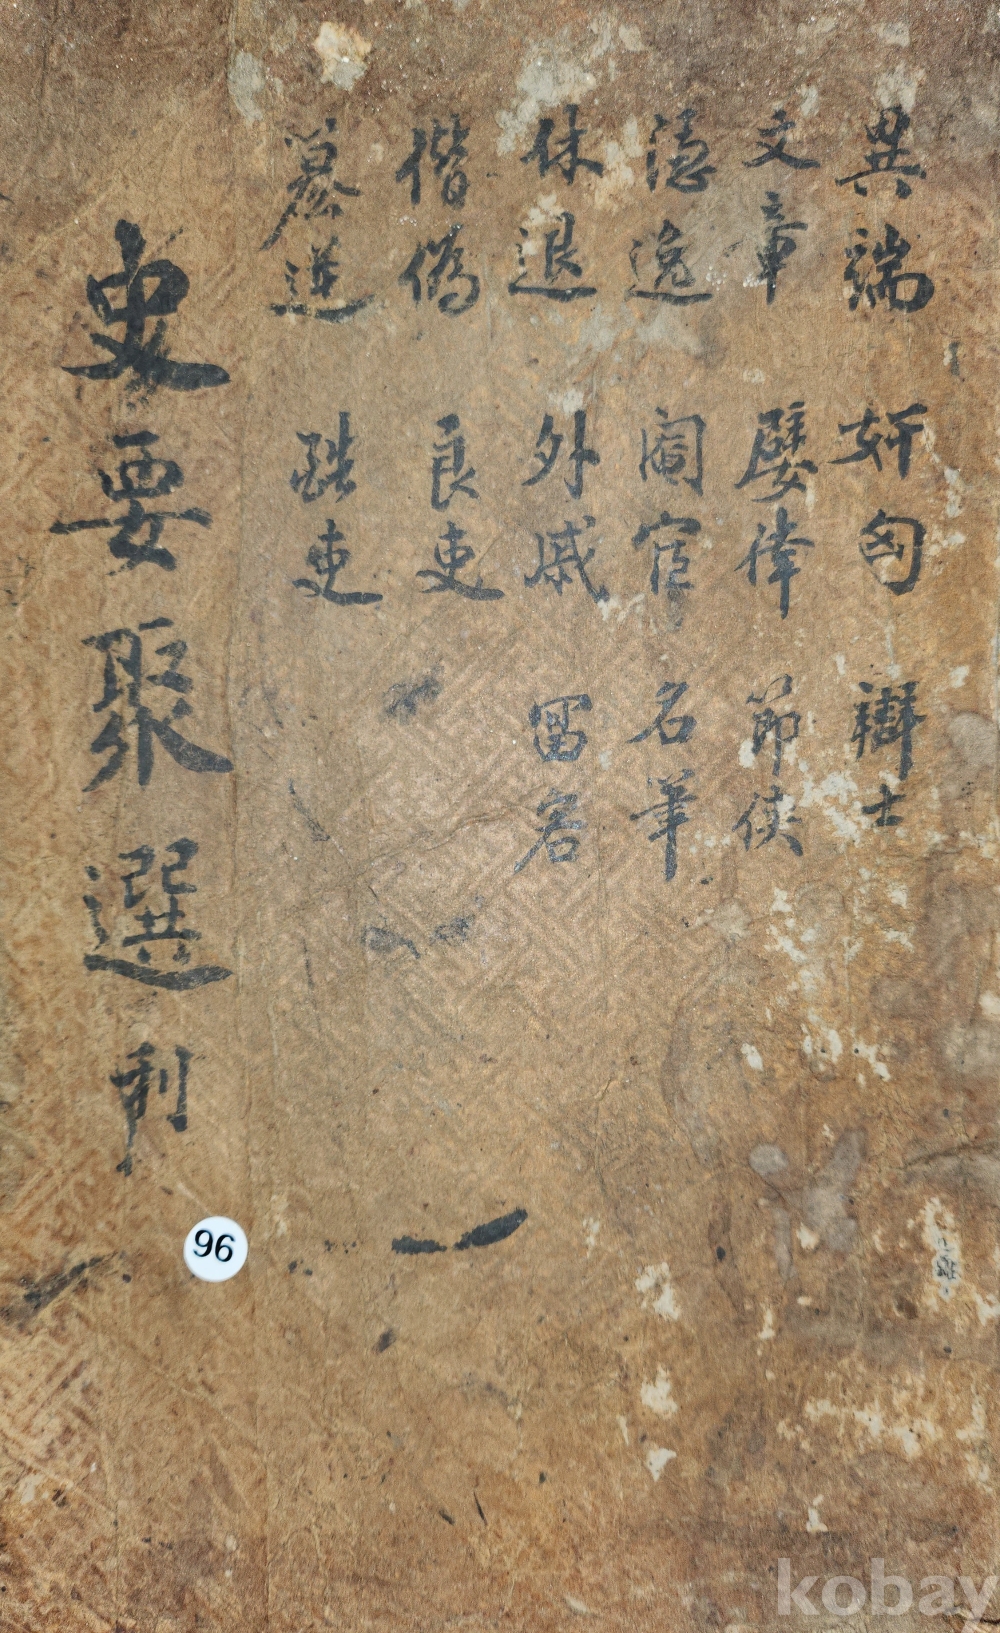 異端 奸匈 辯士
文章 嬖倖 節俠
隱逸 閹宦 名筆
休退 外戚 富名
僭僞 良吏
簒逆 酷吏
史要聚選 利
96
kobay